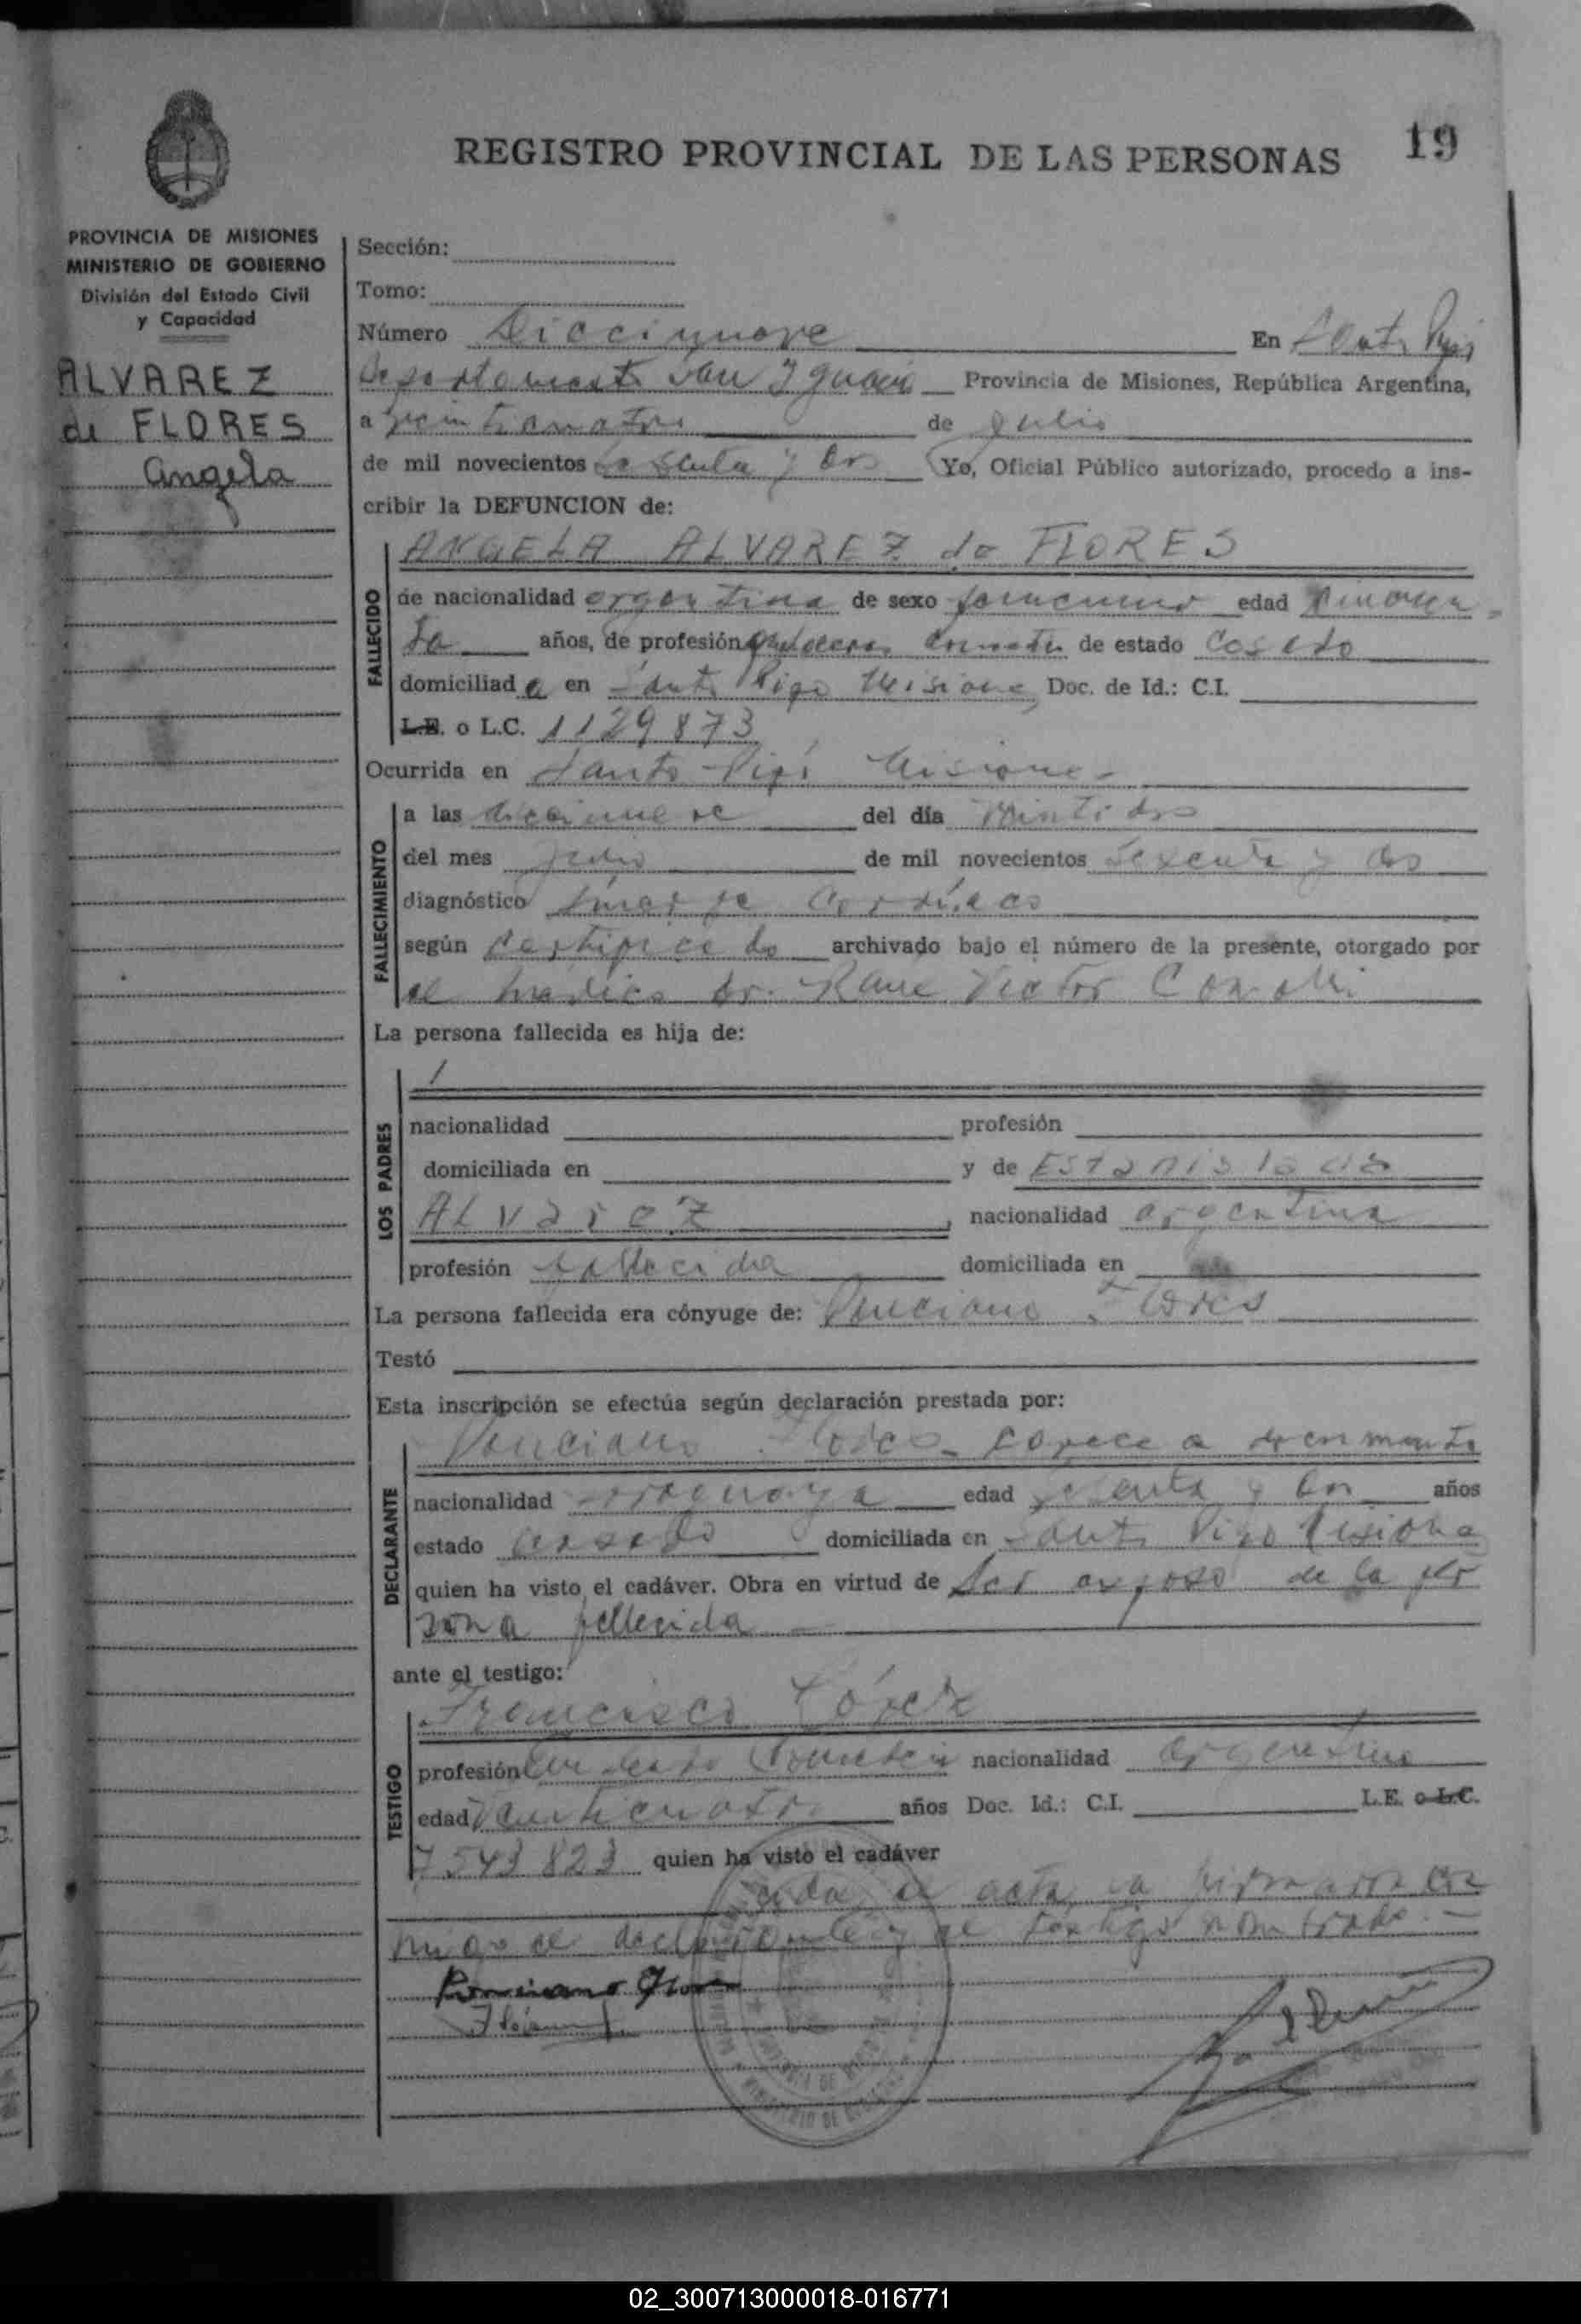 REGISTRO PROVINCIAL DE LAS PERSONAS 19
PROVINCIA DE MISIONES
MINISTERIO DE GOBIERNO
División del Estado Civil
y Capacidad
ALVAREZ
de FLORES
Angela
Sección:
Tomo:
Número Diecinueve En Santo Pipó
Departamento San Ignacio Provincia de Misiones, República Argentina,
a veinticuatro de Julio
de mil novecientos sesenta y dos Yo, Oficial Público autorizado, procedo a ins-
cribir la DEFUNCION de:
ANGELA ALVAREZ de FLORES
FALLECIDO
de nacionalidad argentina de sexo femenino edad
ta años, de profesión de estado Casada
domiciliad a en Santo Pipo Misiones Doc. de Id.: C.I.
L.E. o L.C. 1129873
Ocurrida en Santo Pipó Misiones
FALLECIMIENTO
a las diecinueve del día veintidos
del mes Julio de mil novecientos sesenta y dos
diagnóstico
según certificado archivado bajo el número de la presente, otorgado por
el medico Dr. Raul Victor
La persona fallecida es hija de:
LOS PADRES
nacionalidad profesión
domiciliada en y de Estanislada
ALvarez, nacionalidad argentina
profesión fallecida domiciliada en
La persona fallecida era cónyuge de: Ponciano Flores
Testó
Esta inscripción se efectúa según declaración prestada por:
DECLARANTE
Ponciano Flores carece a documento
nacionalidad edad y dos años
estado casado domiciliada en Santo Pipo Misiones
quien ha visto el cadáver. Obra en virtud de Ser esposo de la per
sona fallecida
ante el testigo:
TESTIGO
Francisco
profesión nacionalidad argentina
edad veinticuatro años Doc. Id.: C.I. L.E. o L.C.
7543823 quien ha visto el cadáver
el acta la firmaron con
migo el declarante y el testigo nombrado.-
Ponciano Flores
02_300713000018-016771